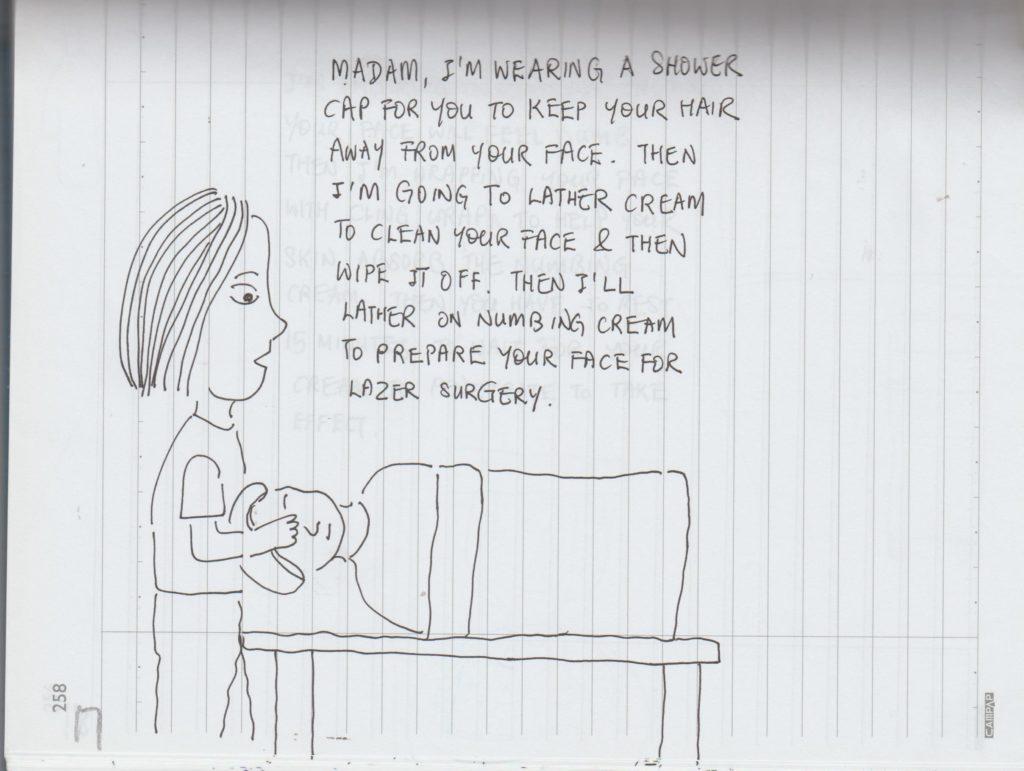 MADAM, I'M WEARING A SHOWER
CAP FOR YOU TO KEEP YOUR HAIR
AWAY FROM YOUR FACE. THEN
I'M GOING TO LATHER CREAM
TO CLEAN YOUR FACE & THEN
WIPE IT OFF. THEN I'LL
LATHER ON NUMBING CREAM
TO PREPARE YOUR FACE FOR
LAZER SURGERY.
258
CAMPAP